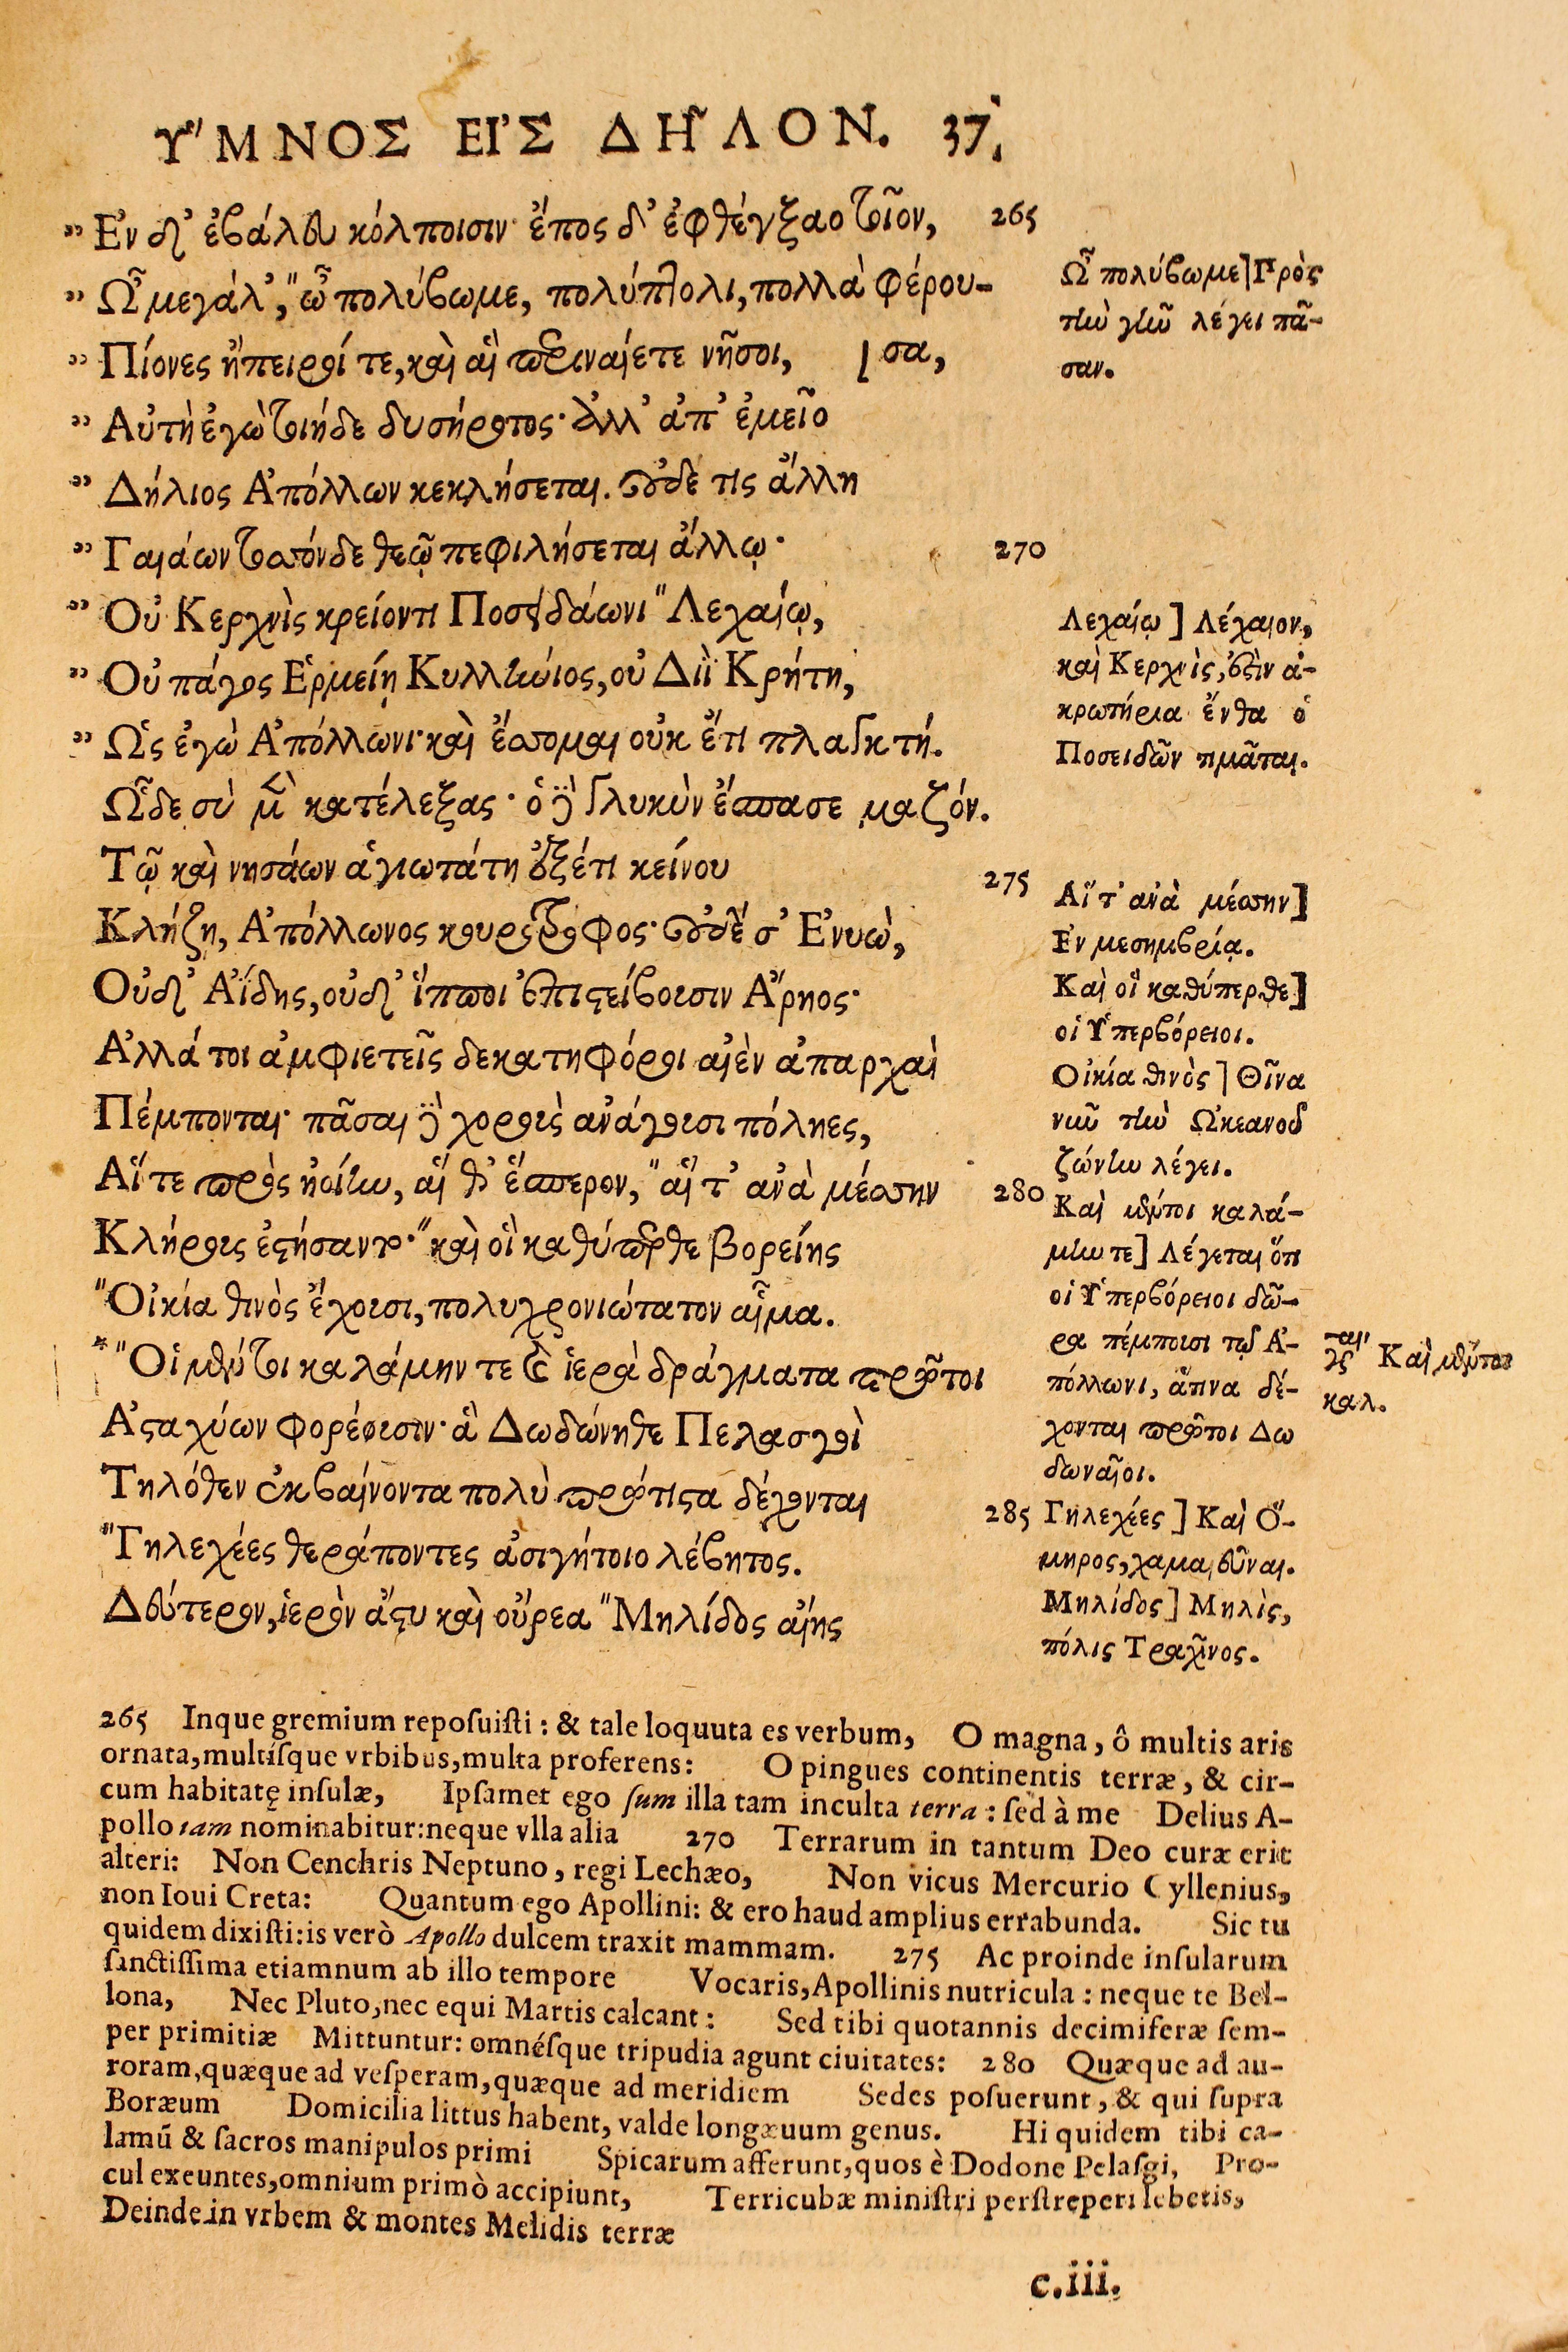 ΥʹΜΝΟΣ ΕΙʾΣ ΔΗ͂ΛΟΝ. 37.
" Ἐν δ' ἐβάλευ κόλποισιν· ἔπος δ' ἐφθέγξαο τοῖον, 265
" Ὦ μεγάλ', "ὦ πολύβωμε, πολύπτολι, πολλὰ φέρου-
" Πίονες ἤπειροί τε, καὶ αἳ περιναίετε νῆσοι, [σα,
" Αὐτὴ ἐγὼ τοιήδε δυσήροτος· ἀλλ' ἀπ' ἐμεῖο
" Δήλιος Ἀπόλλων κεκλήσεται. οὐδέ τις ἄλλη
" Γαιάων τοσσόνδε θεῷ πεφιλήσεται ἄλλῳ· 270
" Οὐ Κερχνὶς κρείοντι Ποσειδάωνι "Λεχαίῳ,
" Οὐ πάγος Ἑρμείῃ Κυλλήνιος, οὐ Διῒ Κρήτη,
" Ὡς ἐγὼ Ἀπόλλωνι· καὶ ἔσσομαι οὐκ ἔτι πλαγκτή.
Ὧδε σὺ μὲν κατέλεξας· ὁ δὲ γλυκὺν ἔσπασε μαζόν.
Τῷ καὶ νησάων ἁγιωτάτη ἐξέτι κείνου 275
Κλήζῃ, Ἀπόλλωνος κουροτρόφος· οὐδέ σ' Ἐνυὼ,
Οὐδ' Ἀΐδης, οὐδ' ἵπποι ἐπιστείβουσιν Ἄρηος·
Ἀλλά τοι ἀμφιετεῖς δεκατηφόροι αἰὲν ἀπαρχαὶ
Πέμπονται· πᾶσαι δὲ χοροὺς ἀνάγουσι πόληες,
Αἵ τε πρὸς ἠοίην, αἵ θ' ἕσπερον, "αἵ τ' ἀνὰ μέσσην 280
Κλήρους ἐστήσαντο· "καὶ οἳ καθύπερθε βορείης
"Οἰκία θινὸς ἔχουσι, πολυχρονιώτατον αἷμα.
* "Οἱ μέν τοι καλάμην τε καὶ ἱερὰ δράγματα πρῶτοι
Ἀσταχύων φορέουσιν· ἃ Δωδώνηθε Πελασγοὶ
Τηλόθεν ἐκβαίνοντα πολὺ πρώτιστα δέχονται 285
"Γηλεχέες θεράποντες ἀσιγήτοιο λέβητος.
Δεύτερον, ἱερὸν ἄστυ καὶ οὔρεα "Μηλίδος αἴης
Ὦ πολύβωμε] Πρὸς
τὴν γῆν λέγει πᾶ-
σαν.
Λεχαίῳ] Λέχαιον,
καὶ Κερχνὶς, ἐστὶν ἀ-
κρωτήρια ἔνθα ὁ
Ποσειδῶν τιμᾶται.
Αἵ τ' ἀνὰ μέσσην]
Ἐν μεσημβρίᾳ.
Καὶ οἳ καθύπερθε]
οἱ Ὑπερβόρειοι.
Οἰκία θινὸς] Θῖνα
νῦν τὴν Ὠκεανοῦ
ζώνην λέγει.
Καὶ μέντοι καλά-
μην τε] Λέγεται ὅτι
οἱ Ὑπερβόρειοι δῶ-
ρα πέμπουσι τῷ Ἀ-
πόλλωνι, ἅτινα δέ-
χονται πρῶτοι Δω
δωναῖοι.
Γηλεχέες] Καὶ Ὅ-
μηρος, χαμαιεῦναι.
Μηλίδος] Μηλὶς,
πόλις Τραχῖνος.
Καὶ μέντοι
καλ.
265 Inque gremium reposuisti : & tale loquuta es verbum, O magna, ô multis aris
ornata, multísque vrbibus, multa proferens: O pingues continentis terræ, & cir-
cum habitatę insulæ, Ipsamet ego sum illa tam inculta terra : sed à me Delius A-
pollo tam nominabitur: neque vlla alia 270 Terrarum in tantum Deo curæ erit
alteri: Non Cenchris Neptuno, regi Lechæo, Non vicus Mercurio Cyllenius,
non Ioui Creta: Quantum ego Apollini: & ero haud amplius errabunda. Sic tu
quidem dixisti: is verò Apollo dulcem traxit mammam. 275 Ac proinde insularum
sanctissima etiamnum ab illo tempore Vocaris, Apollinis nutricula : neque te Bel-
lona, Nec Pluto, nec equi Martis calcant : Sed tibi quotannis decimiferæ sem-
per primitiæ Mittuntur: omnésque tripudia agunt ciuitates: 280 Quæque ad au-
roram, quæque ad vesperam, quæque ad meridiem Sedes posuerunt, & qui supra
Boræum Domicilia littus habent, valde longæuum genus. Hi quidem tibi ca-
lamũ & sacros manipulos primi Spicarum afferunt, quos è Dodone Pelasgi, Pro-
cul exeuntes, omnium primò accipiunt, Terricubæ ministri perstreperi lebetis,
Deinde in vrbem & montes Melidis terræ
c.iii.